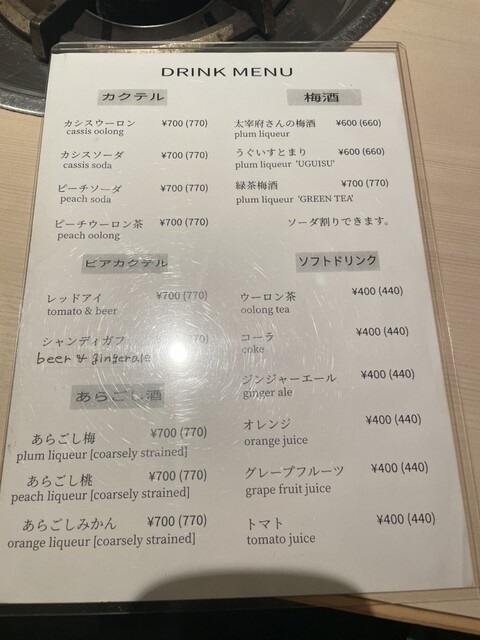 DRINK MENU
カクテル
カシスウーロン ¥700 (770)
cassis oolong
カシスソーダ ¥700 (770)
cassis soda
ピーチソーダ ¥700 (770)
peach soda
ピーチウーロン茶 ¥700 (770)
peach oolong
ビアカクテル
レッドアイ ¥700 (770)
tomato & beer
シャンディガフ 770)
beer & gingerale
あらごし酒
あらごし梅 ¥700 (770)
plum liqueur [coarsely strained]
あらごし桃 ¥700 (770)
peach liqueur [coarsely strained]
あらごしみかん ¥700 (770)
orange liqueur [coarsely strained]
梅酒
太宰府さんの梅酒 ¥600 (660)
plum liqueur
うぐいすとまり ¥600 (660)
plum liqueur 'UGUISU'
緑茶梅酒 ¥700 (770)
plum liqueur 'GREEN TEA'
ソーダ割りできます。
ソフトドリンク
ウーロン茶 ¥400 (440)
oolong tea
コーラ ¥400 (440)
coke
ジンジャーエール ¥400 (440)
ginger ale
オレンジ ¥400 (440)
orange juice
グレープフルーツ ¥400 (440)
grape fruit juice
トマト ¥400 (440)
tomato juice